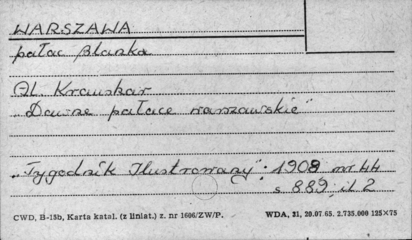 WARSZAWA
pałac Blanka
Al. Kraushar
"Dawne pałace warszawskie"
"Tygodnik Ilustrowany" 1908 nr 44
s 889, il 2
CWD, B-15b, Karta katal. (z liniat.) z. nr 1606/ZW/P.
WDA, 21, 20.07.65. 2.735.000 125×75